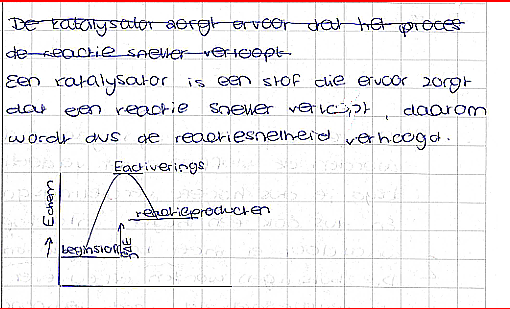 De katalysator zorgt ervoor dat het proces
de reactie sneller verloopt
Een katalysator is een stof die ervoor zorgt
dat een reactie sneller verloopt, daarom
wordt dus de reactiesnelheid verhoogd.
Eactiverings
reactieproducten
beginstof
ΔE
→ Echem